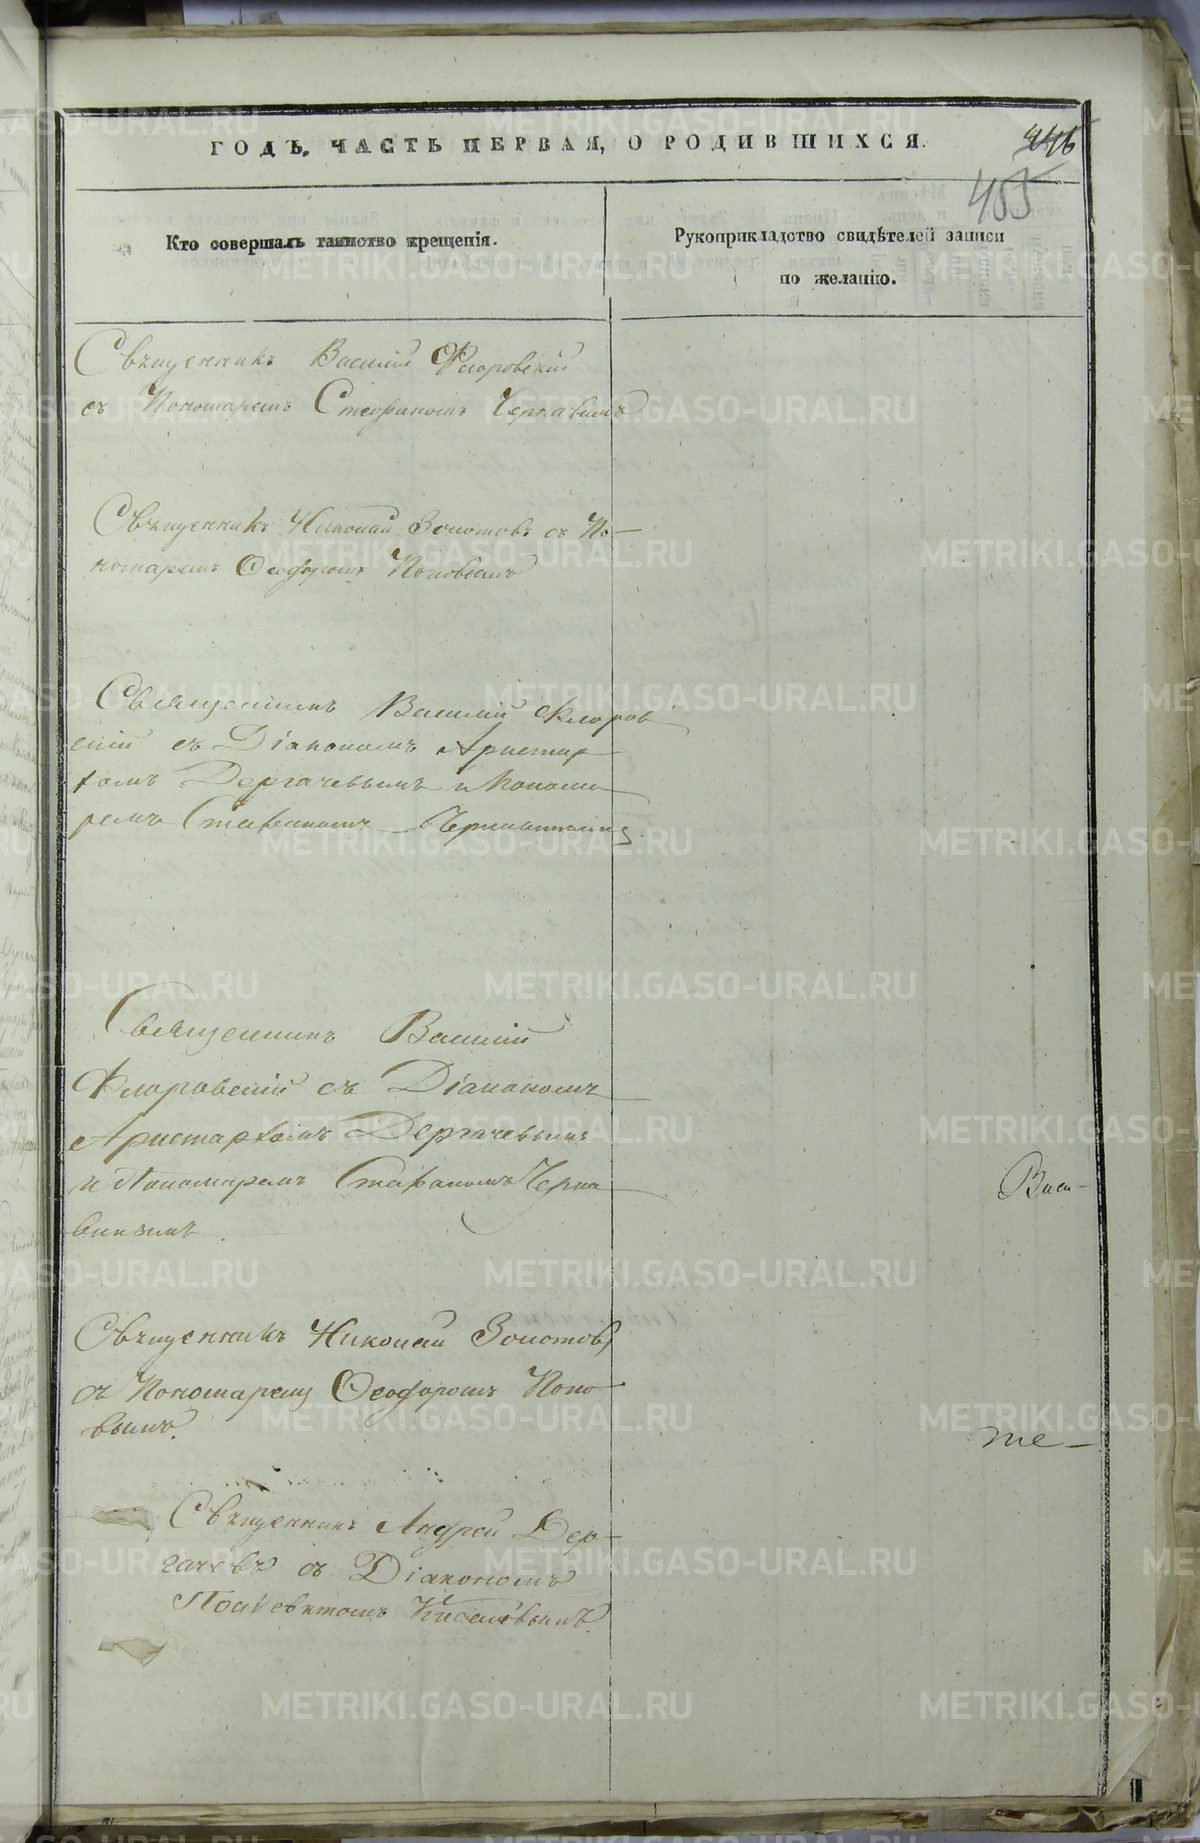 ГОДЪ, ЧАСТЬ ПЕРВАЯ, О РОДИВШИХСЯ.
446
455
Кто совершалъ таинство крещенія.
Рукоприкладство свидѣтелей записи
по желанію.
Священникъ Василій Флоровскій
съ Пономаремъ Стефаномъ
Священникъ Николай Золотовъ съ По-
номаремъ Ѳеодоромъ Поповымъ
Священникъ Василій Флоров
скій съ Діакономъ Аристар
хомъ Дергачевымъ и Понома
ремъ Стефаномъ
Священникъ Василій
Флоровскій съ Діакономъ
Аристархомъ Дергачевымъ
и Пономаремъ Стефаномъ Черна
Васи-
Священникъ Николай Золотовъ
съ Пономаремъ Ѳеодоромъ Попо-
вымъ.
те-
Священникъ Андрей Дер-
гачевъ съ Діакономъ
Поліевктомъ Киселёвымъ.
METRIKI.GASO-URAL.RU